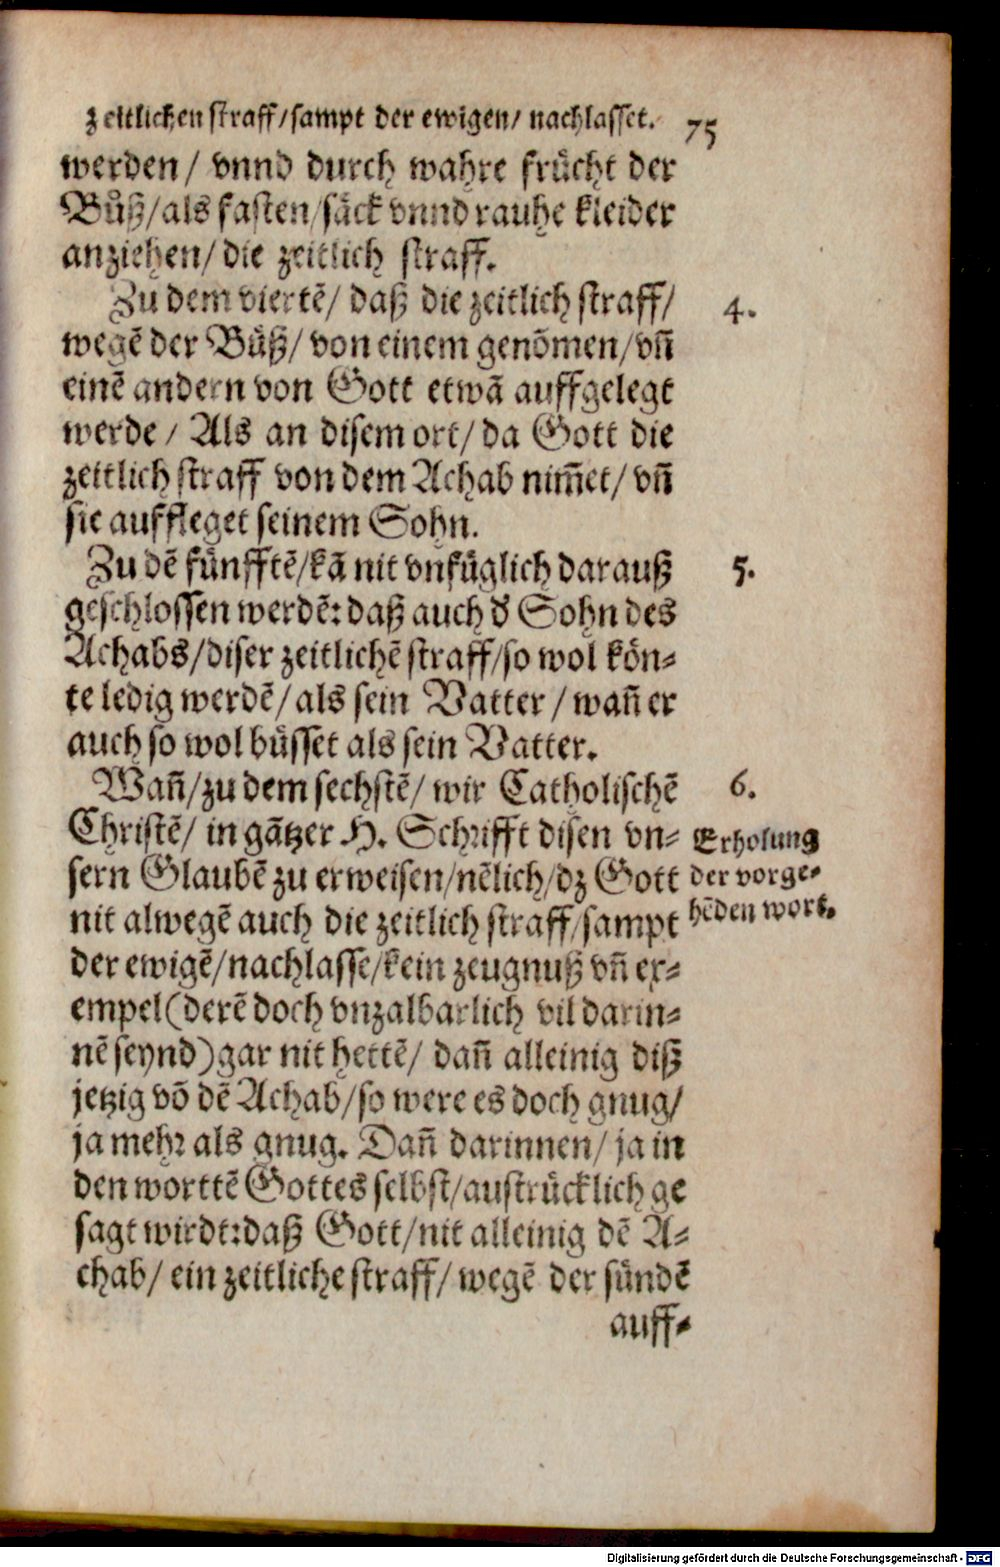 zeitlichen straff/sampt der ewigen/ nachlasset. 75
werden/ vnnd durch wahre frücht der
Bůß/als fasten/säck vnnd rauhe kleider
anziehen/ die zeitlich straff.
Zu dem viertē/ daß die zeitlich straff/ 4.
wegē der Bůß/ von einem genõmen/vñ
einē andern von Gott etwã auffgelegt
werde/ Als an disem ort/ da Gott die
zeitlich straff von dem Achab nim̃et/ vñ
sie auffleget seinem Sohn.
Zu dē fünfftē/kã nit vnfüglich darauß 5.
geschlossen werdē: daß auch d' Sohn des
Achabs/diser zeitlichē straff/so wol kön-
te ledig werdē/als sein Vatter/wañ er
auch so wol büsset als sein Vatter.
Wañ/zu dem sechstē/ wir Catholischē 6.
Christē/ in gãtzer H. Schrifft disen vn-
sern Glaubē zu erweisen/nēlich/dz Gott
nit alwegē auch die zeitlich straff/sampt
Erholung
der vorge-
hēden wort.
der ewigē/nachlasse/kein zeugnuß vñ ex-
empel(derē doch vnzalbarlich vil darin-
nē seynd)gar nit hettē/ dañ alleinig diß
jetzig võ dē Achab/so were es doch gnug/
ja mehr als gnug. Dañ darinnen/ ja in
den worttē Gottes selbst/austrücklich ge
sagt wirdt:daß Gott/nit alleinig dē A-
chab/ ein zeitliche straff/ wegē der sündē
auff-
Digitalisierung gefördert durch die Deutsche Forschungsgemeinschaft - DFG